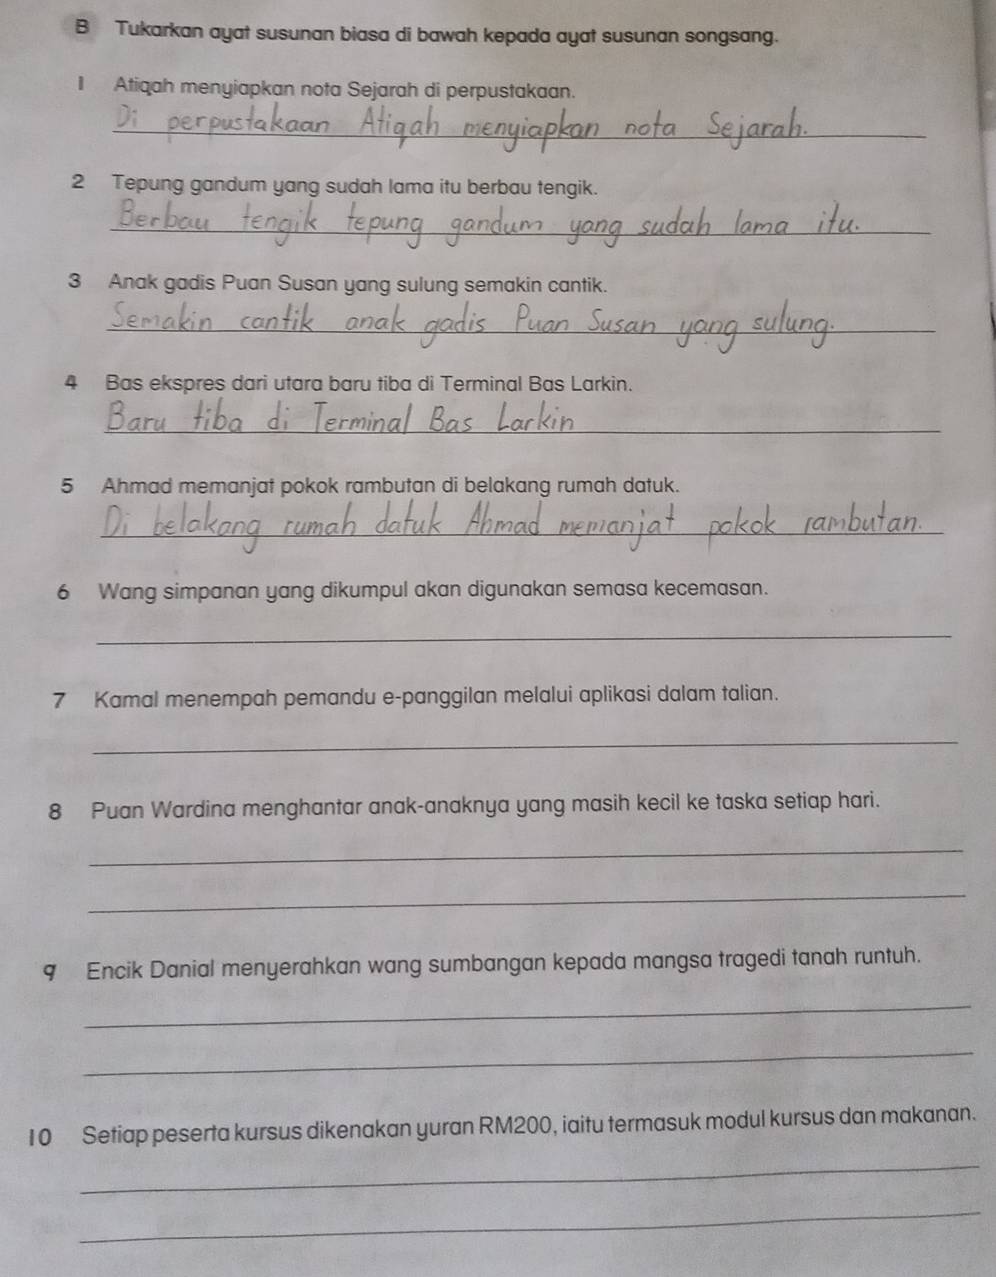 B Tukarkan ayat susunan biasa di bawah kepada ayat susunan songsang.
1 Atiqah menyiapkan nota Sejarah di perpustakaan.
Di perpustakaan Atiqah menyiapkan nota Sejarah.
2 Tepung gandum yang sudah lama itu berbau tengik.
Berbau tengik tepung gandum yang sudah lama itu.
3 Anak gadis Puan Susan yang sulung semakin cantik.
Semakin cantik anak gadis Puan Susan yang sulung.
4 Bas ekspres dari utara baru tiba di Terminal Bas Larkin.
Baru tiba di Terminal Bas Larkin
5 Ahmad memanjat pokok rambutan di belakang rumah datuk.
Di belakang rumah datuk Ahmad memanjat pokok rambutan.
6 Wang simpanan yang dikumpul akan digunakan semasa kecemasan.
7 Kamal menempah pemandu e-panggilan melalui aplikasi dalam talian.
8 Puan Wardina menghantar anak-anaknya yang masih kecil ke taska setiap hari.
9 Encik Danial menyerahkan wang sumbangan kepada mangsa tragedi tanah runtuh.
10 Setiap peserta kursus dikenakan yuran RM200, iaitu termasuk modul kursus dan makanan.